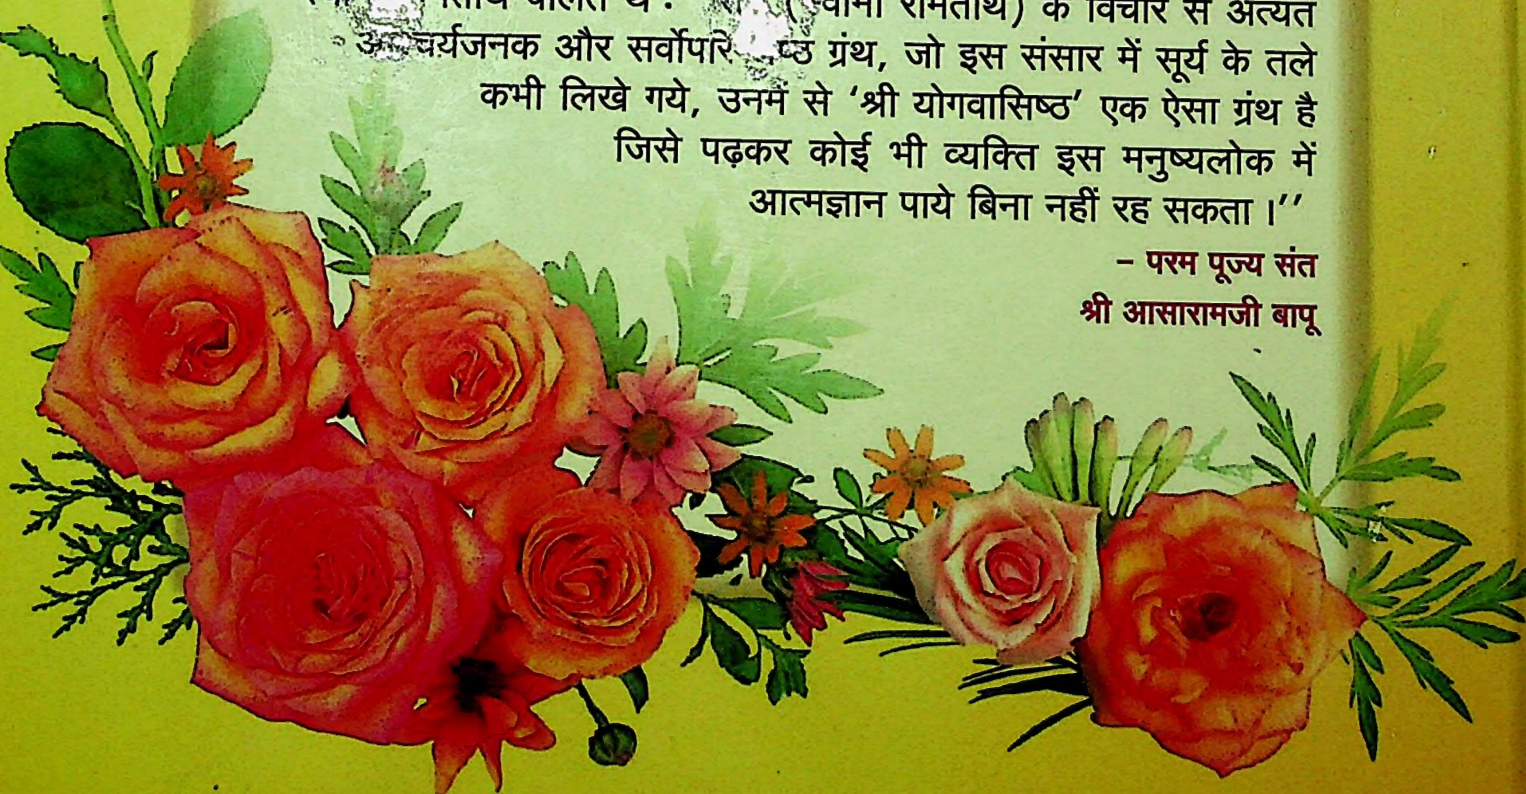 बोलते थे : (स्वामी रामतीर्थ) के विचार से अत्यंत
और सर्वोपरि ग्रंथ, जो इस संसार में सूर्य के तले
कभी लिखे गये, उनमें से ‘श्री योगवासिष्ठ’ एक ऐसा ग्रंथ है
जिसे पढ़कर कोई भी व्यक्ति इस मनुष्यलोक में
आत्मज्ञान पाये बिना नहीं रह सकता ।’’
– परम पूज्य संत
श्री आसारामजी बापू